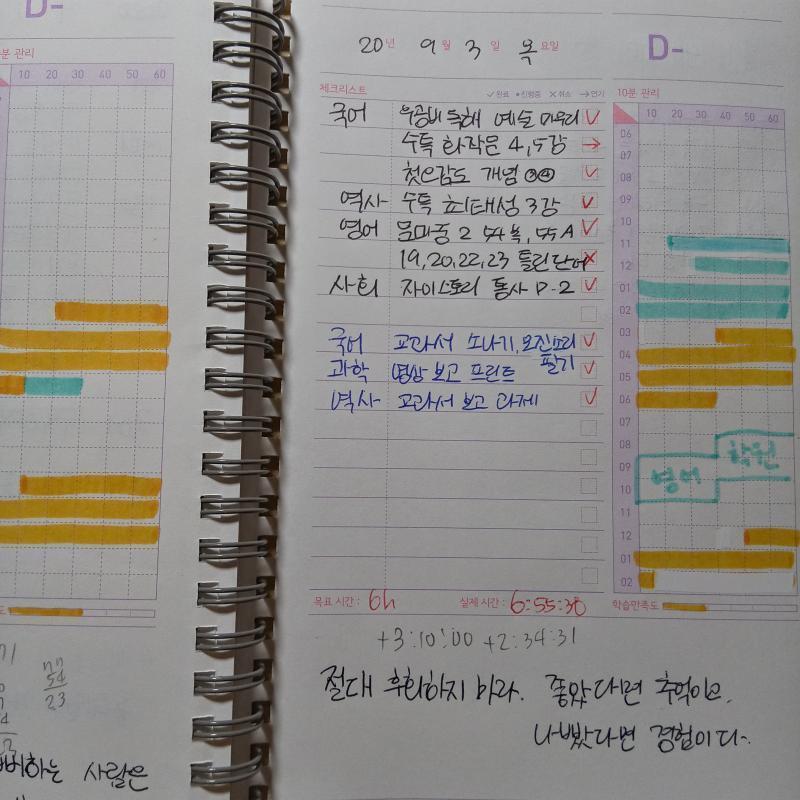 D-
분 관리
10 20 30 40 50 60
20년 9월 3일 목요일
D-
체크리스트
✓완료 •진행중 ✕취소 →연기
10분 관리
10 20 30 40 50 60
국어 우공비 독해 예술 마무리 ✓
수특 화작문 4, 5강 →
첫으감도 개념 ③④ ✓
역사 수특 최태성 3강 ✓
영어 문마중 2 54 복, 55 A ✓
19, 20, 22, 23 틀린단어 ✕
사회 자이스토리 통사 D-2 ✓
국어 교과서 소나기, 오진프리 ✓
필기
과학 영상 보고 프린트 ✓
역사 교과서 보고 과제 ✓
06
07
08
09
10
11
12
01
02
03
04
05
06
07
08
09
10
11
12
01
02
학원
영어
목표 시간 : 6h
실제 시간 : 6:55:30
학습만족도
+3:10:00 +2:34:31
절대 후회하지 마라. 좋았다면 추억이고.
나빴다면 경험이다.
54
23
하는 사람은